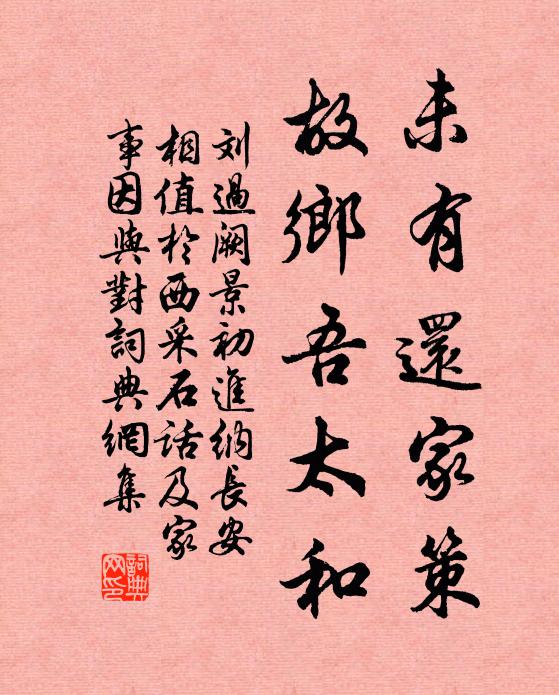 未有還家策
故鄉吾太和
刘過阙景初進納長安
相值於西采石話及家
事因與對詞典網集
詞典
网印